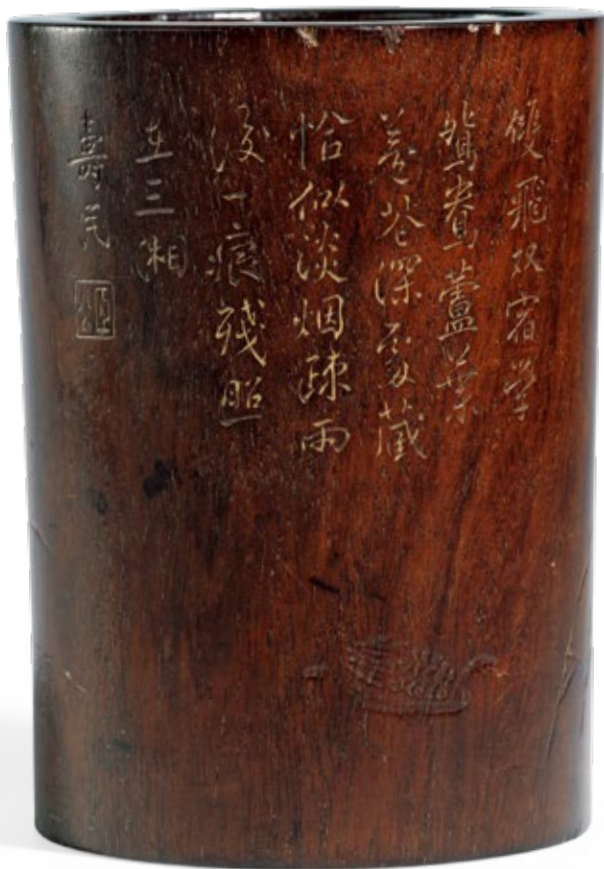 雙飛双宿學
鴛鴦蘆葉
蘆花深處藏
恰似淡烟疎雨
後一痕殘照
在三湘
壽民